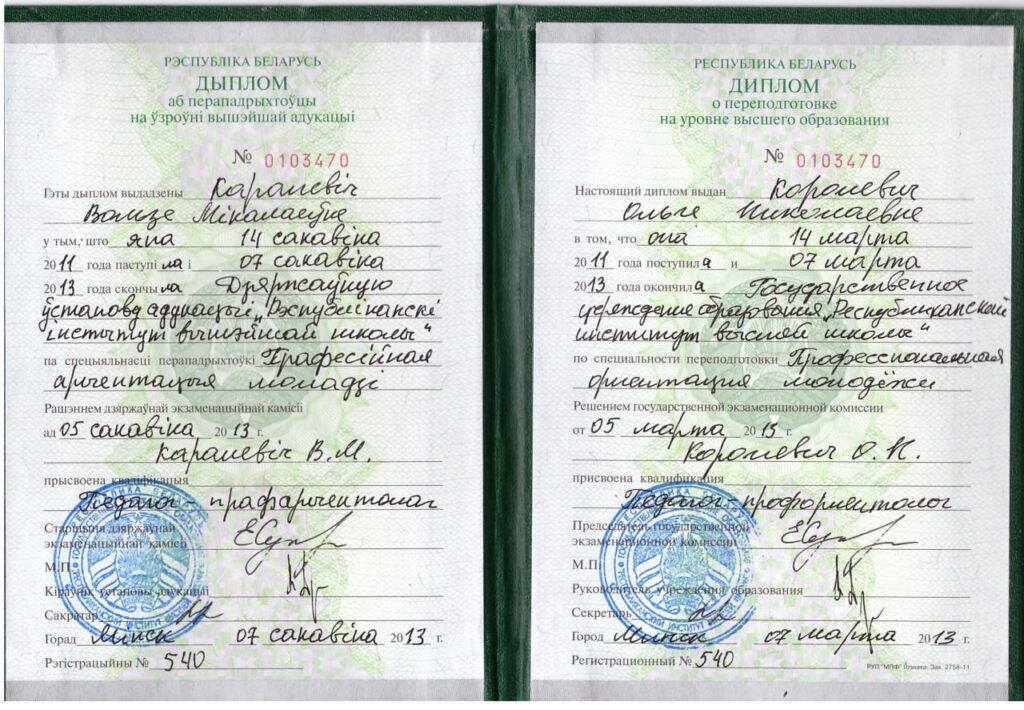 РЭСПУБЛІКА БЕЛАРУСЬ
ДЫПЛОМ
аб перападрыхтоўцы
на ўзроўні вышэйшай адукацыі
№ 0103470
Гэты дыплом выдадзены Каралевіч
Вользе Мікалаеўне
у тым, што яна 14 сакавіка
2011 года паступіла і 07 сакавіка
2013 года скончыла Дзяржаўную
ўстанову адукацыі „Рэспубліканскі
інстытут вышэйшай школы“
па спецыяльнасці перападрыхтоўкі Прафесійная
арыентацыя моладзі
Рашэннем дзяржаўнай экзаменацыйнай камісіі
ад 05 сакавіка 2013 г.
Каралевіч В.М.
прысвоена кваліфікацыя
Педагог-прафарыентолаг
Старшыня дзяржаўнай
экзаменацыйнай камісіі
М.П.
Кіраўнік установы адукацыі
Сакратар
Горад Мінск 07 сакавіка 2013 г.
Рэгістрацыйны № 540
РЕСПУБЛИКА БЕЛАРУСЬ
ДИПЛОМ
о переподготовке
на уровне высшего образования
№ 0103470
Настоящий диплом выдан Королевич
Ольге Николаевне
в том, что она 14 марта
2011 года поступила и 07 марта
2013 года окончила Государственное
учреждение образования „Республиканский
институт высшей школы“
по специальности переподготовки Профессиональная
ориентация молодёжи
Решением государственной экзаменационной комиссии
от 05 марта 2013 г.
Королевич О.Н.
присвоена квалификация
Педагог-профориентолог
Председатель государственной
экзаменационной комиссии
М.П.
Руководитель учреждения образования
Секретарь
Город Минск 07 марта 2013 г.
Регистрационный № 540
РУП "МПФ" Гознака. Зак. 2758-11